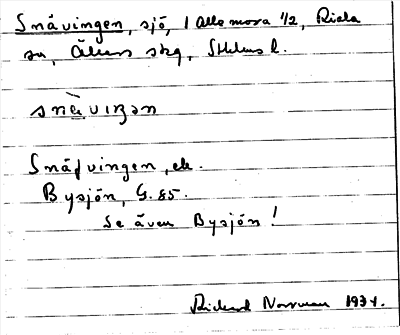 Småvingen, sjö, i Allemora 1/2, Riala
sn, Åkers skg, Sthlms l.
snèvıŋən
Småfvingen, ek.
Bysjön, G. 85.
Se även Bysjön!
Rickard Norrman 1934.